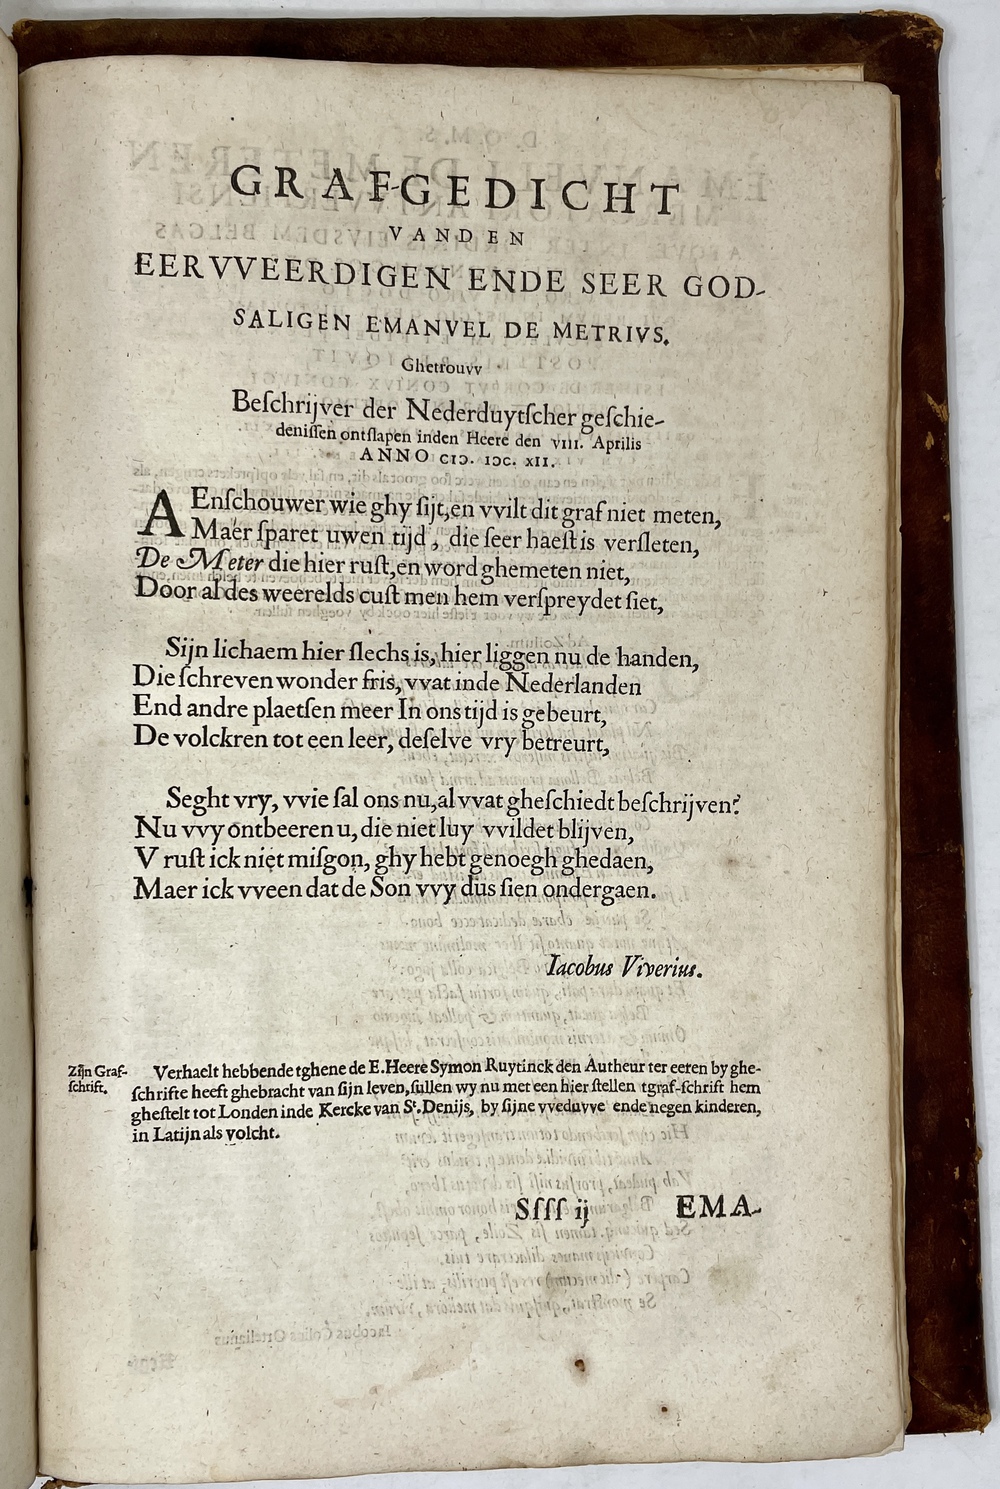 GRAF-GEDICHT
VANDEN
EERVVEERDIGEN ENDE SEER GOD-
SALIGEN EMANVEL DE METRIVS.
Ghetrouvv
Beſchrijver der Nederduytſcher geſchie-
deniſſen ontſlapen inden Heere den VIII. Aprilis
ANNO CIↃ. IↃC. XII.
AEnſchouwer wie ghy ſijt, en vvilt dit graf niet meten,
Maer ſparet uwen tijd, die ſeer haeſt is verſleten,
De Meter die hier ruſt, en word ghemeten niet,
Door al des weerelds cuſt men hem verſpreydet ſiet,
Sijn lichaem hier ſlechs is, hier liggen nu de handen,
Die ſchreven wonder fris, vvat inde Nederlanden
End andre plaetſen meer In ons tijd is gebeurt,
De volckren tot een leer, deſelve vry betreurt,
Seght vry, vvie ſal ons nu, al vvat gheſchiedt beſchrijven?
Nu vvy ontbeeren u, die niet luy vvildet blijven,
V ruſt ick niet miſgon, ghy hebt genoegh ghedaen,
Maer ick vveen dat de Son vvy dus ſien ondergaen.
Iacobus Viverius.
Zijn Graf-
ſchrift.
Verhaelt hebbende tghene de E. Heere Symon Ruytinck den Autheur ter eeren by ghe-
ſchrifte heeft ghebracht van ſijn leven, ſullen wy nu met een hier ſtellen tgraf-ſchrift hem
gheſtelt tot Londen inde Kercke van St. Denijs, by ſijne vveduvve ende negen kinderen,
in Latijn als volcht.
Sſſſ ij
EMA-